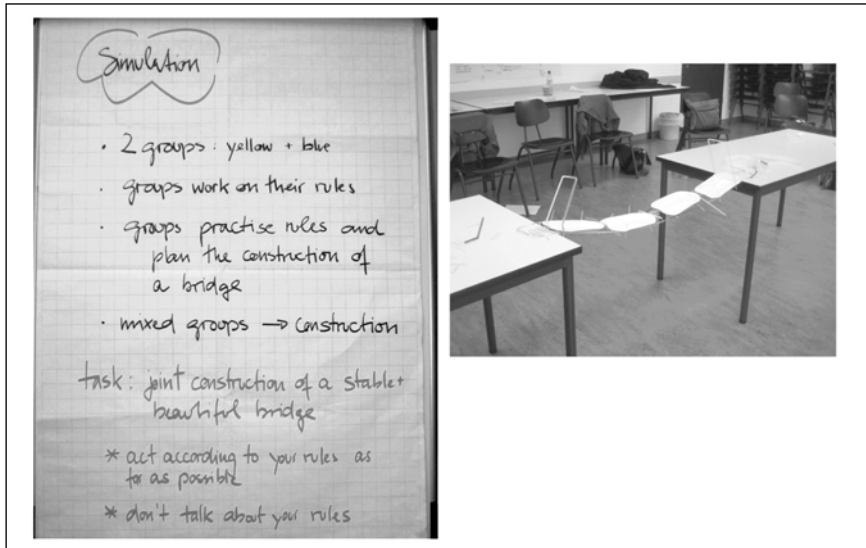 Simulation
• 2 groups: yellow + blue
• groups work on their rules
• groups practise rules and
plan the construction of
a bridge
• mixed groups → construction
task: joint construction of a stable+
beautiful bridge
* act according to your rules as
far as possible
* don't talk about your rules